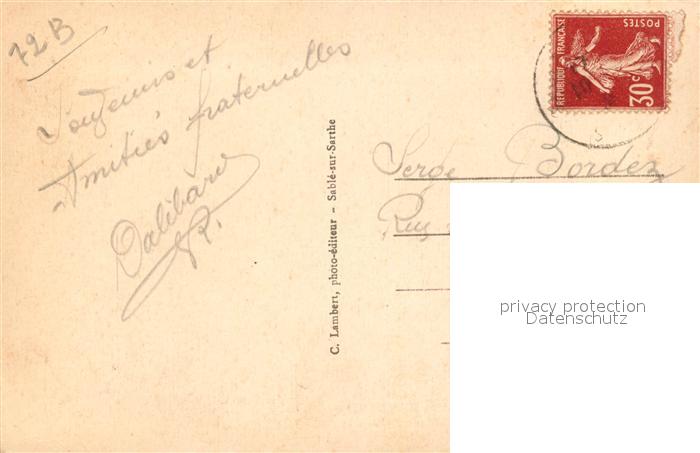 72 B
Souvenirs et
Amitiés fraternelles
Dalibard
R.
C. Lambert, photo-éditeur - Sablé-sur-Sarthe
RÉPUBLIQUE FRANÇAISE
POSTES
30c
Serge Bordez
privacy protection
Datenschutz